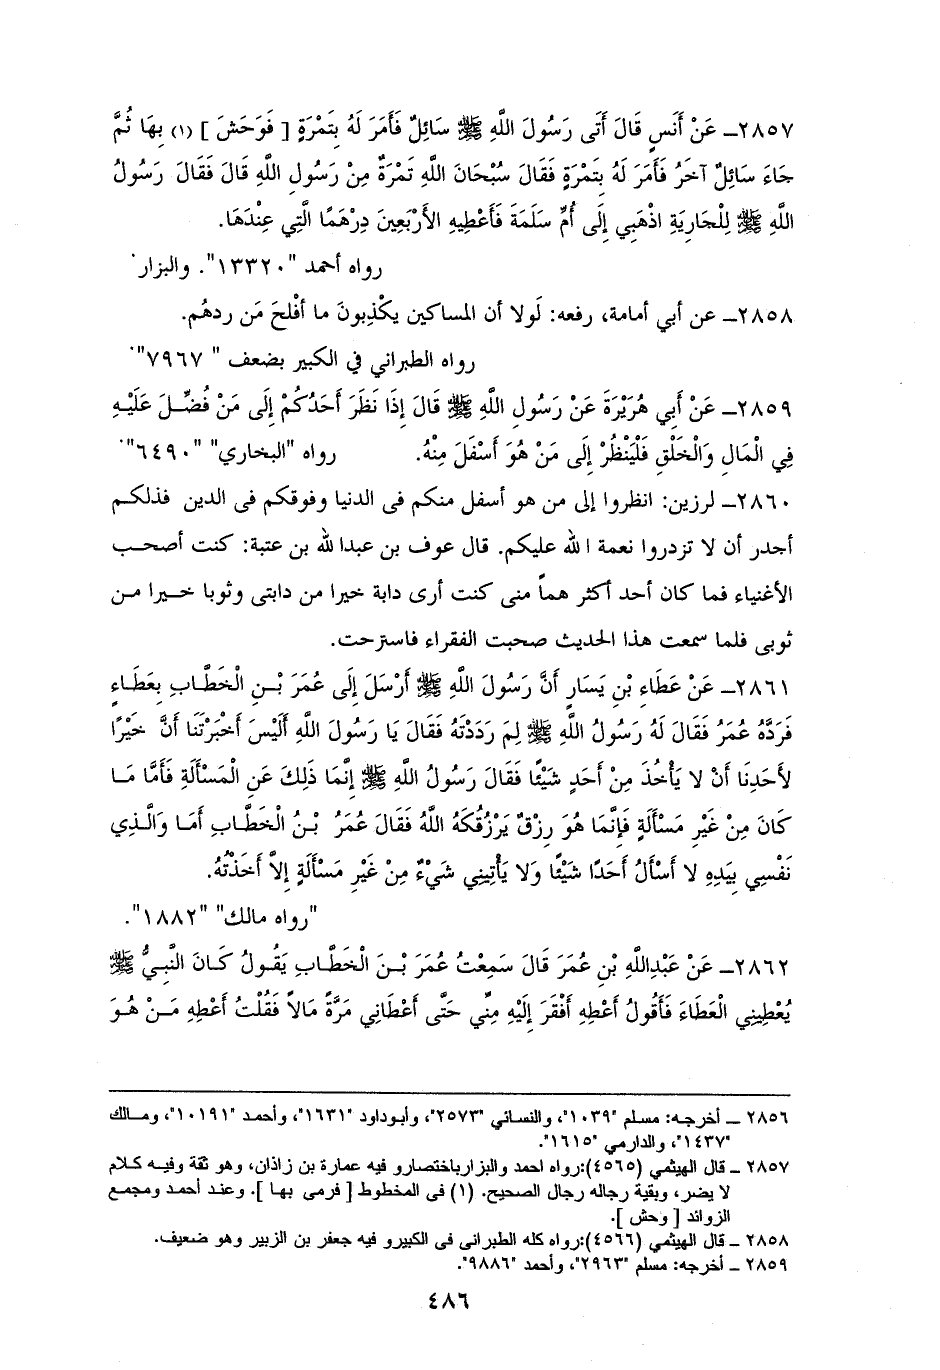 ٢٨٥٧ـ عَنْ أَنَسٍ قَالَ أَتَى رَسُولَ اللَّهِ ﷺ سَائِلٌ فَأَمَرَ لَهُ بِتَمْرَةٍ [ فَوَحَشَ ] (١) بِهَا ثُمَّ
جَاءَ سَائِلٌ آخَرُ فَأَمَرَ لَهُ بِتَمْرَةٍ فَقَالَ سُبْحَانَ اللَّهِ تَمْرَةٌ مِنْ رَسُولِ اللَّهِ قَالَ فَقَالَ رَسُولُ
اللَّهِ ﷺ لِلْجَارِيَةِ اذْهَبِي إِلَى أُمِّ سَلَمَةَ فَأَعْطِيهِ الأَرْبَعِينَ دِرْهَمًا الَّتِي عِنْدَهَا.
رواه أحمد "١٣٣٢٠". والبزار.
٢٨٥٨ـ عن أبي أمامة، رفعه: لَولا أن المساكين يكْذِبونَ ما أفْلحَ مَن ردهُم.
رواه الطبراني في الكبير بضعف " ٧٩٦٧".
٢٨٥٩ـ عَنْ أَبِي هُرَيْرَةَ عَنْ رَسُولِ اللَّهِ ﷺ قَالَ إِذَا نَظَرَ أَحَدُكُمْ إِلَى مَنْ فُضِّلَ عَلَيْهِ
فِي الْمَالِ وَالْخَلْقِ فَلْيَنْظُرْ إِلَى مَنْ هُوَ أَسْفَلَ مِنْهُ. رواه "البخاري" "٦٤٩٠".
٢٨٦٠ـ لرزين: انظروا إلى من هو أسفل منكم فى الدنيا وفوقكم فى الدين فذلكم
أجدر أن لا تزدروا نعمة الله عليكم. قال عوف بن عبدالله بن عتبة: كنت أصحب
الأغنياء فما كان أحد أكثر هماً منى كنت أرى دابة خيرا من دابتى وثوبا خيرا من
ثوبى فلما سمعت هذا الحديث صحبت الفقراء فاسترحت.
٢٨٦١ـ عَنْ عَطَاءِ بْنِ يَسَارٍ أَنَّ رَسُولَ اللَّهِ ﷺ أَرْسَلَ إِلَى عُمَرَ بْنِ الْخَطَّابِ بِعَطَاءٍ
فَرَدَّهُ عُمَرُ فَقَالَ لَهُ رَسُولُ اللَّهِ ﷺ لِمَ رَدَدْتَهُ فَقَالَ يَا رَسُولَ اللَّهِ أَلَيْسَ أَخْبَرْتَنَا أَنَّ خَيْرًا
لأَحَدِنَا أَنْ لا يَأْخُذَ مِنْ أَحَدٍ شَيْئًا فَقَالَ رَسُولُ اللَّهِ ﷺ إِنَّمَا ذَلِكَ عَنِ الْمَسْأَلَةِ فَأَمَّا مَا
كَانَ مِنْ غَيْرِ مَسْأَلَةٍ فَإِنَّمَا هُوَ رِزْقٌ يَرْزُقُكَهُ اللَّهُ فَقَالَ عُمَرُ بْنُ الْخَطَّابِ أَمَا وَالَّذِي
نَفْسِي بِيَدِهِ لا أَسْأَلُ أَحَدًا شَيْئًا وَلا يَأْتِينِي شَيْءٌ مِنْ غَيْرِ مَسْأَلَةٍ إِلاَّ أَخَذْتُهُ.
"رواه مالك" "١٨٨٢".
٢٨٦٢ـ عَنْ عَبْدِاللَّهِ بْنِ عُمَرَ قَالَ سَمِعْتُ عُمَرَ بْنَ الْخَطَّابِ يَقُولُ كَانَ النَّبِيُّ ﷺ
يُعْطِينِي الْعَطَاءَ فَأَقُولُ أَعْطِهِ أَفْقَرَ إِلَيْهِ مِنِّي حَتَّى أَعْطَانِي مَرَّةً مَالاً فَقُلْتُ أَعْطِهِ مَنْ هُوَ
٢٨٥٦ ـ أخرجه: مسلم "١٠٣٩"، والنسائي "٢٥٧٣"، وأبوداود "١٦٣١"، وأحمد "١٠١٩١"، ومالك
"١٤٣٧"، والدارمي "١٦١٥".
٢٨٥٧ ـ قال الهيثمي (٤٥٦٥):رواه احمد والبزارباختصارو فيه عمارة بن زاذان، وهو ثقة وفيه كلام
لا يضر، وبقية رجاله رجال الصحيح. (١) فى المخطوط [ فرمى بها ]. وعند أحمد ومجمع
الزوائد [ وحش ].
٢٨٥٨ ـ قال الهيثمي (٤٥٦٦):رواه كله الطبرانى فى الكبيرو فيه جعفر بن الزبير وهو ضعيف.
٢٨٥٩ ـ أخرجه: مسلم "٢٩٦٣"، وأحمد "٩٨٨٦".
٤٨٦